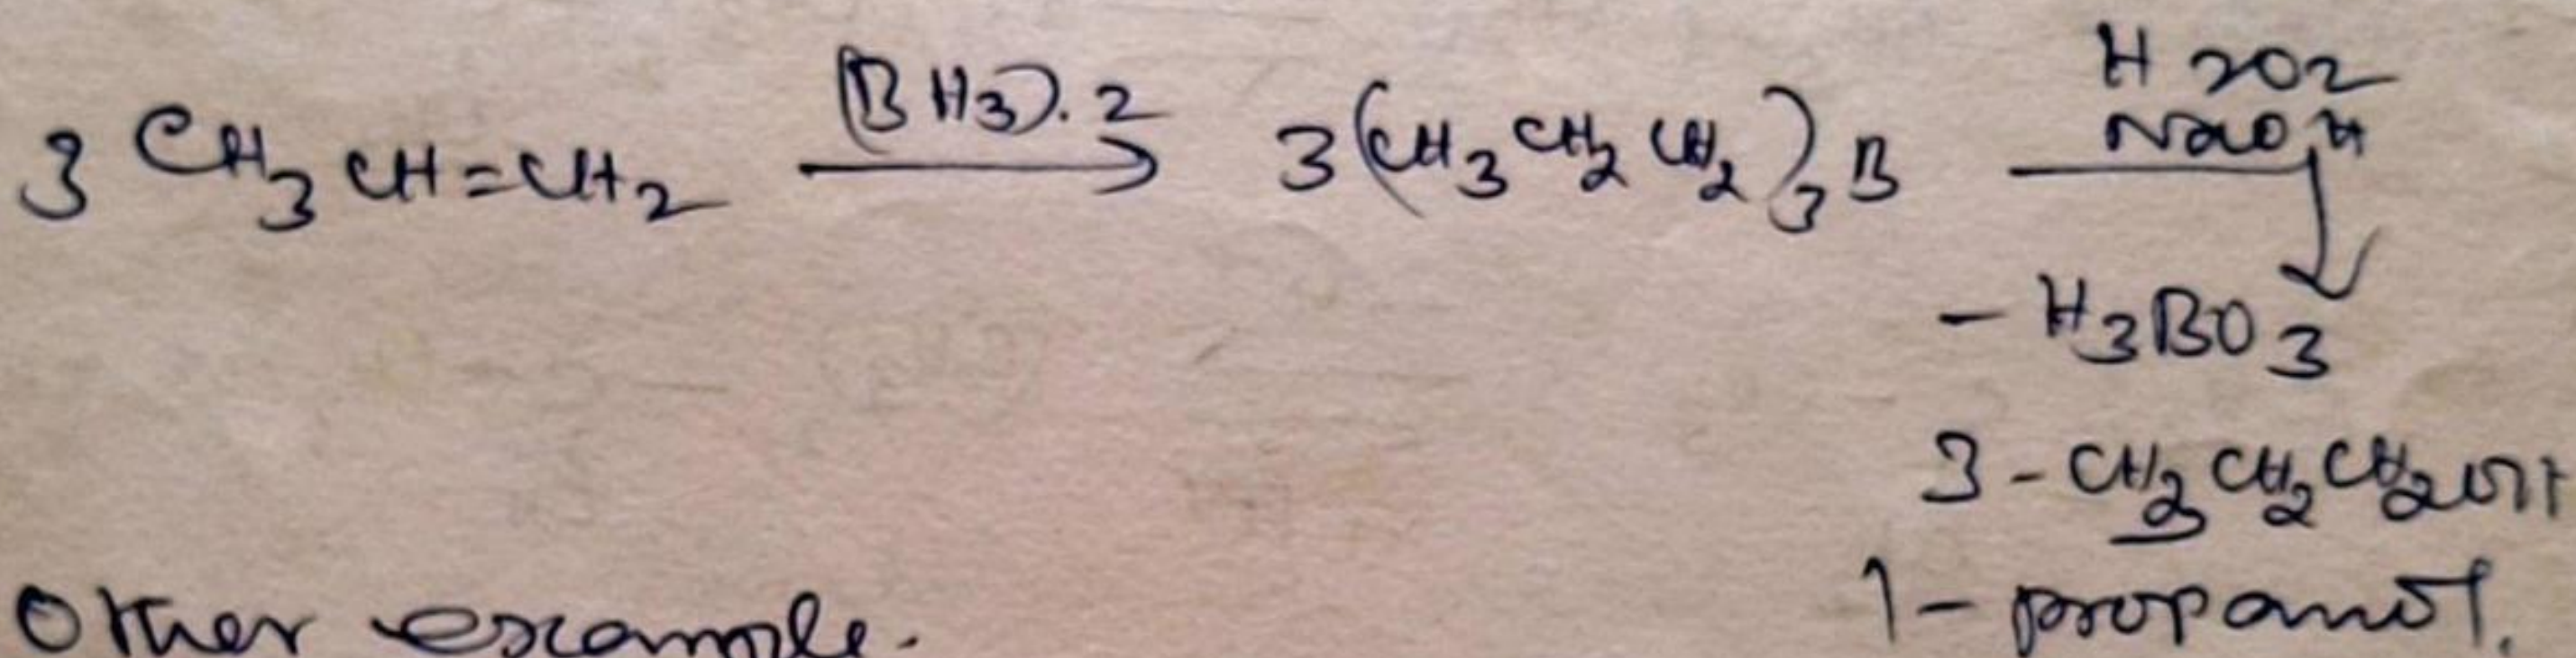 3 CH3CH=CH2 (BH3).2 → 3(CH3CH2CH2)3B H2O2 NaOH
- H3BO3
3 - CH3CH2CH2OH
1 - propanol.
Other example.